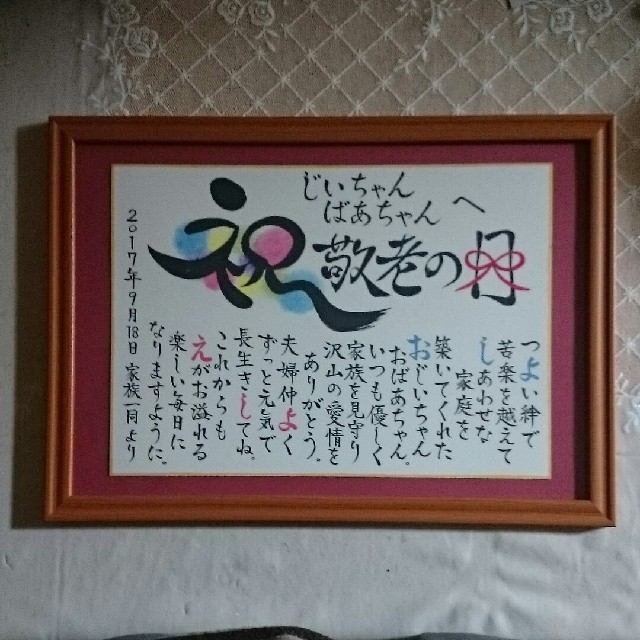 じいちゃん
ばあちゃんへ
祝敬老の日
つよい絆で
苦楽を越えて
しあわせな
家庭を
築いてくれた
おじいちゃん
おばあちゃん。
いつも優しく
家族を見守り
沢山の愛情を
ありがとう。
夫婦仲よく
ずっと元気で
長生きしてね。
これからも
えがお溢れる
楽しい毎日に
なりますように。
2017年9月18日 家族一同より